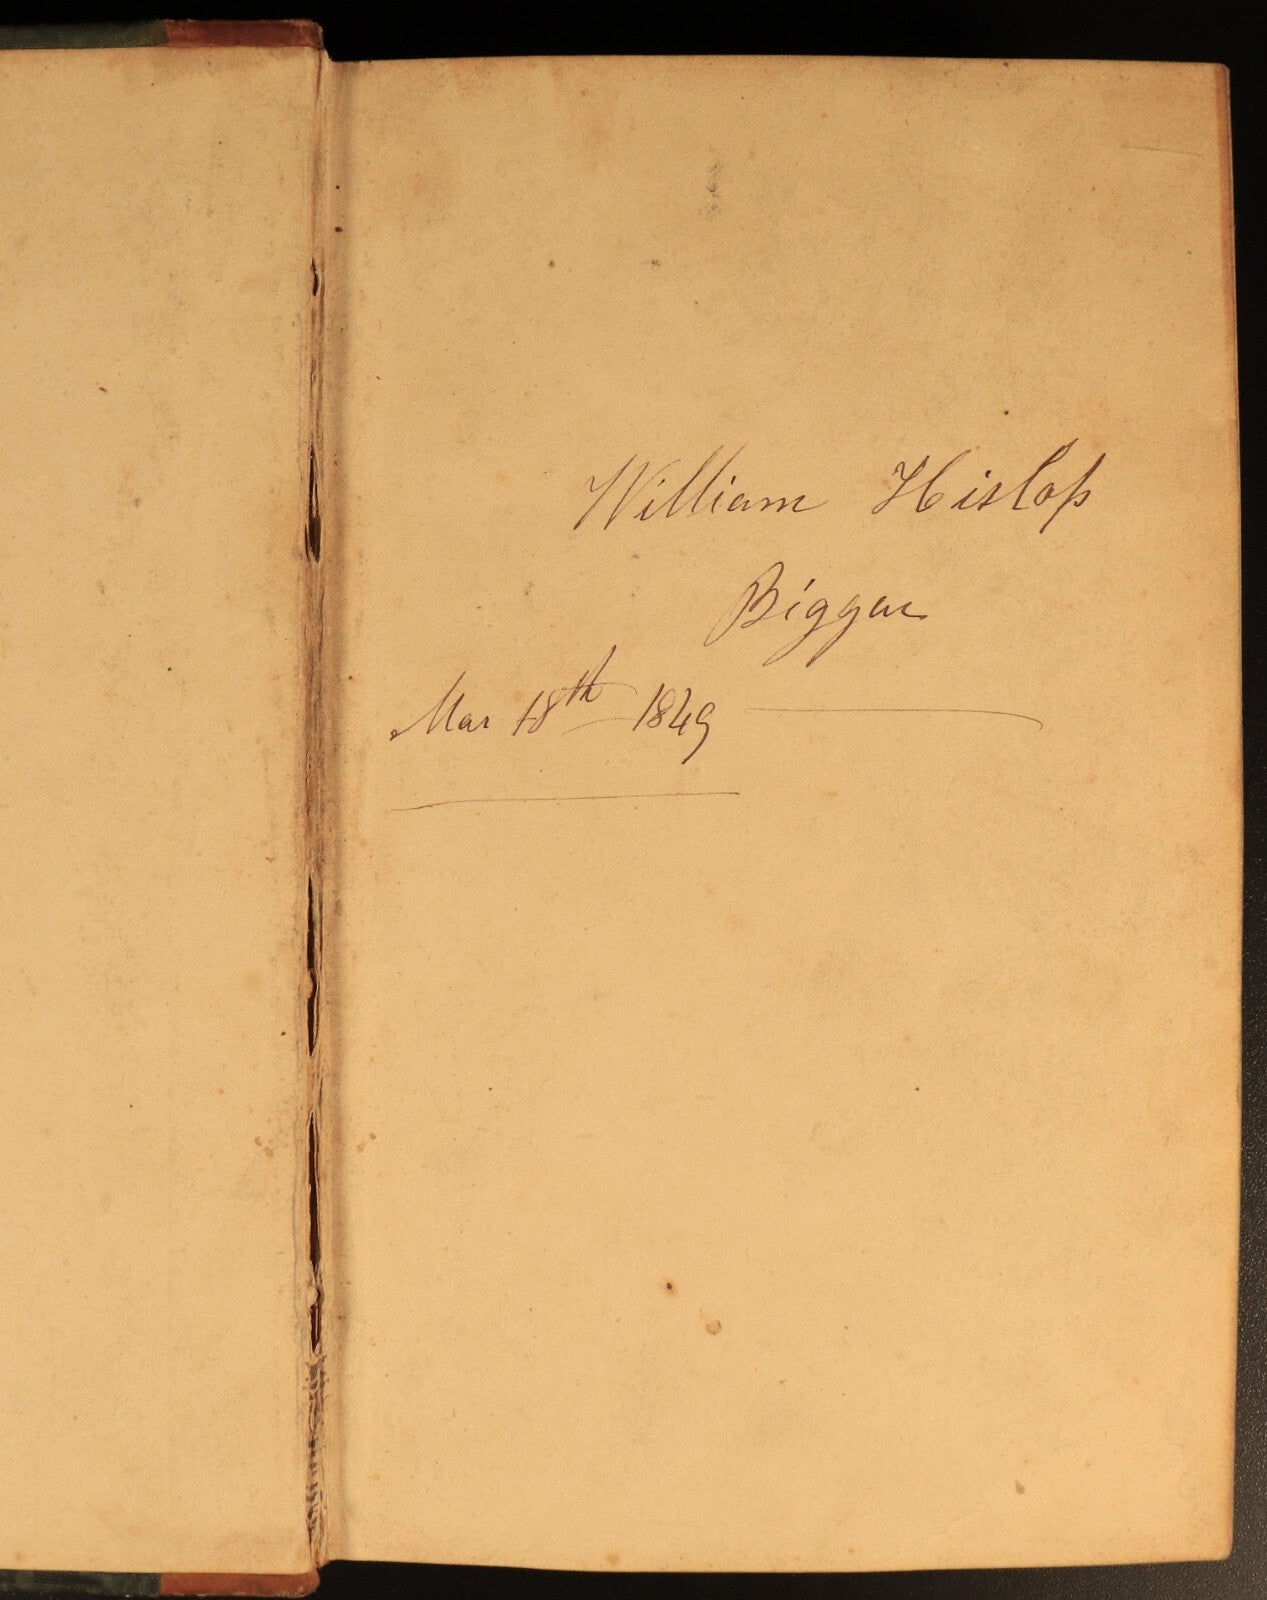 William Hislop
Biggar
Mar 18th 1849